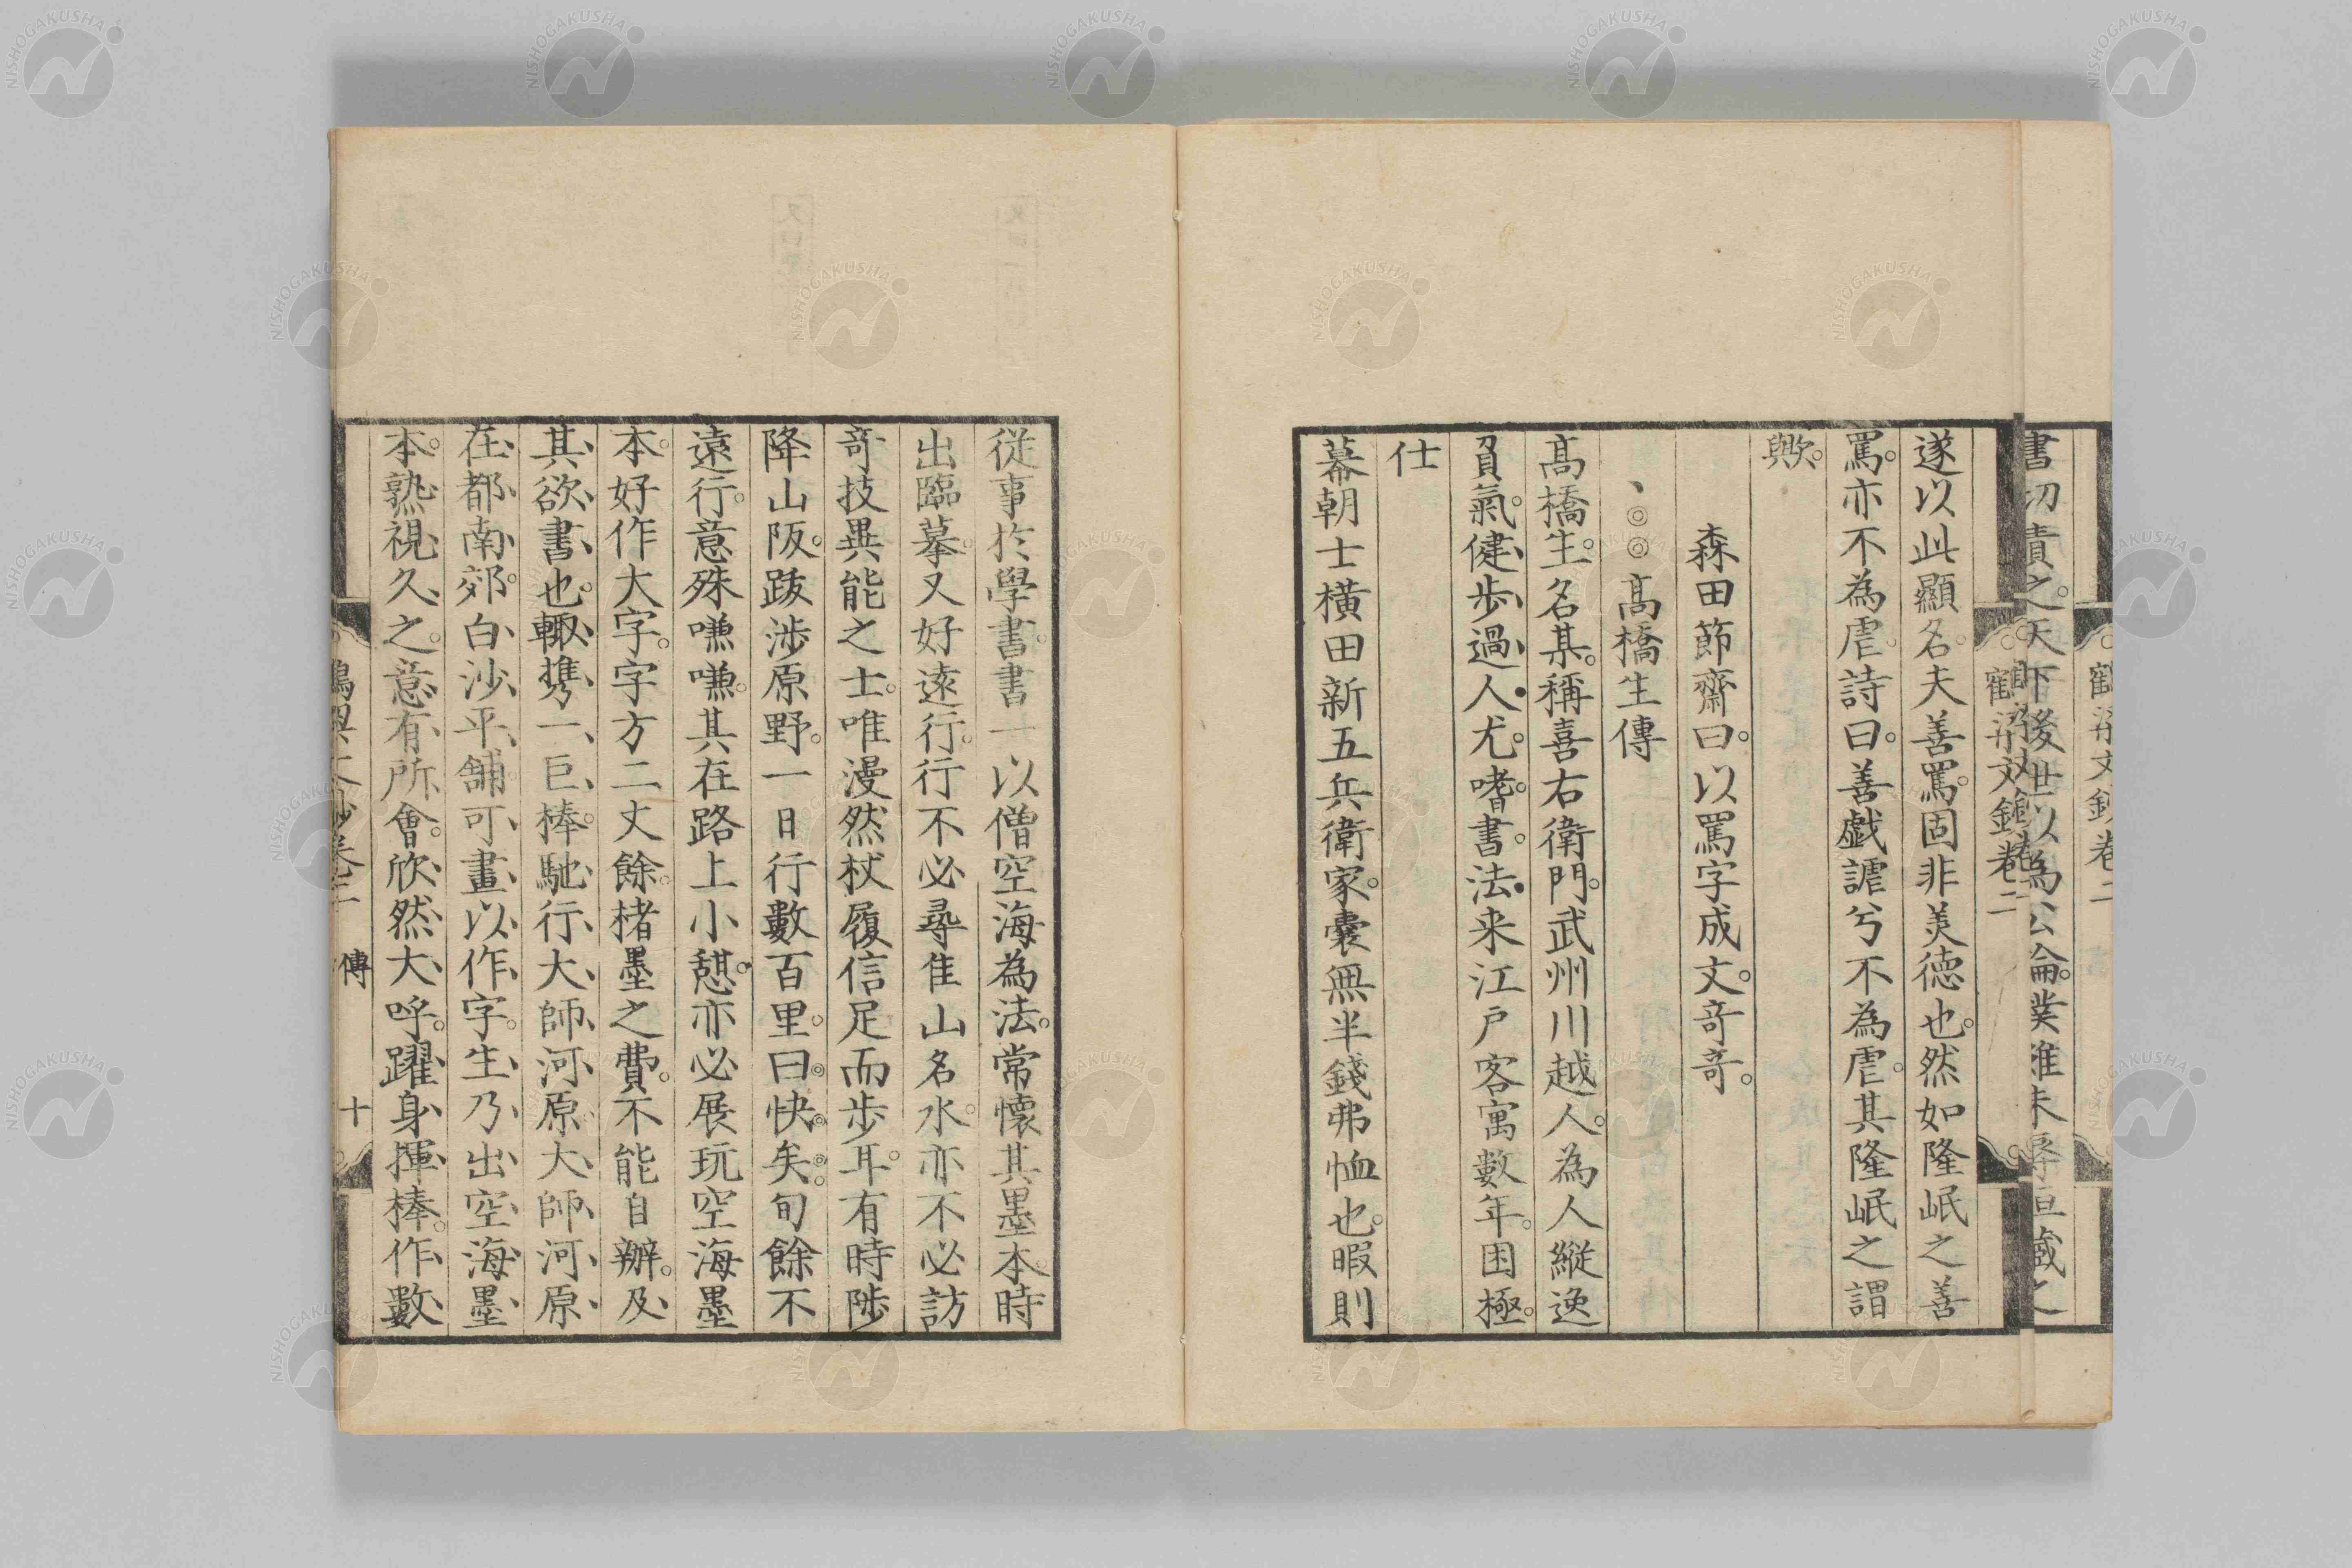 遂以此顯名夫善罵固非美徳也然如隆岷之善
罵亦不為虐詩曰善戯謔兮不為虐其隆岷之謂
歟
森田節齋曰以罵字成文奇奇
髙橋生傳
髙橋生名某稱喜右衛門武州川越人為人縦逸
負氣健歩過人尤嗜書法来江戸客寓數年困極
仕
幕朝士横田新五兵衛家嚢無半錢弗恤也暇則
従事於學書書一以僧空海為法常懐其墨本時
出臨摹又好遠行行不必尋佳山名水亦不必訪
奇技異能之士唯漫然杖履信足而歩耳有時陟
降山阪跋渉原野一日行數百里曰快矣旬餘不
遠行意殊嗛嗛其在路上小憇亦必展玩空海墨
本好作大字字方二丈餘楮墨之費不能自辦及
其欲書也輙携一巨棒馳行大師河原大師河原
在都南郊白沙平舗可畫以作字生乃出空海墨
本熟視久之意有所會欣然大呼躍身揮棒作數
傳
十
鶴梁文鈔卷二
NISHOGAKUSHA